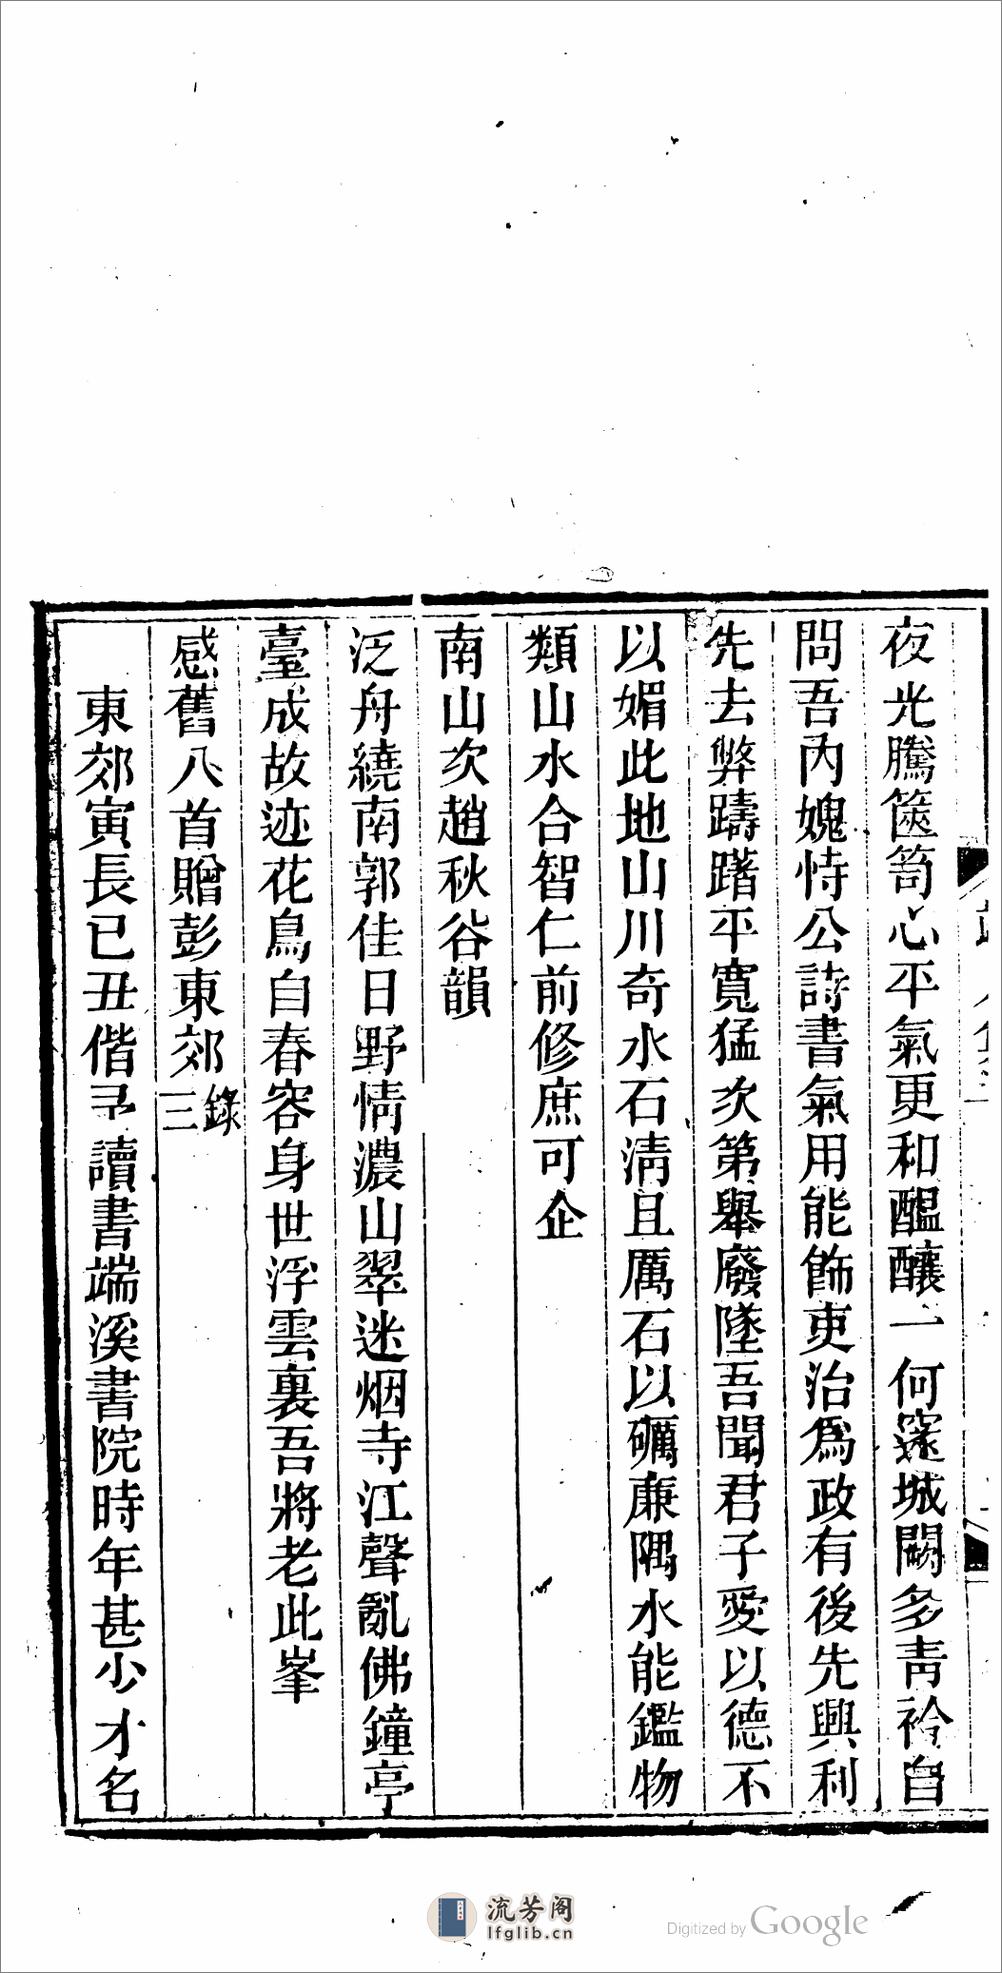 夜光騰篋笥心平氣更和醞釀一何窪城闕多青衿自
問吾內媿恃公詩書氣用能飾吏治為政有後先興利
先去弊躊躇平寬猛次第舉廢墜吾聞君子愛以德不
以媚此地山川奇水石清且厲石以礪亷隅水能鑑物
類山水合智仁前修庶可企
南山次趙秋谷韻
泛舟繞南郭佳日野情濃山翠迷烟寺江聲亂佛鐘亭
臺成故迹花鳥自春容身世浮雲裏吾將老此峯
感舊八首贈彭東郊錄三
東郊寅長己丑偕予讀書端溪書院時年甚少才名
流芳阁
lfglib.cn
Digitized by Google